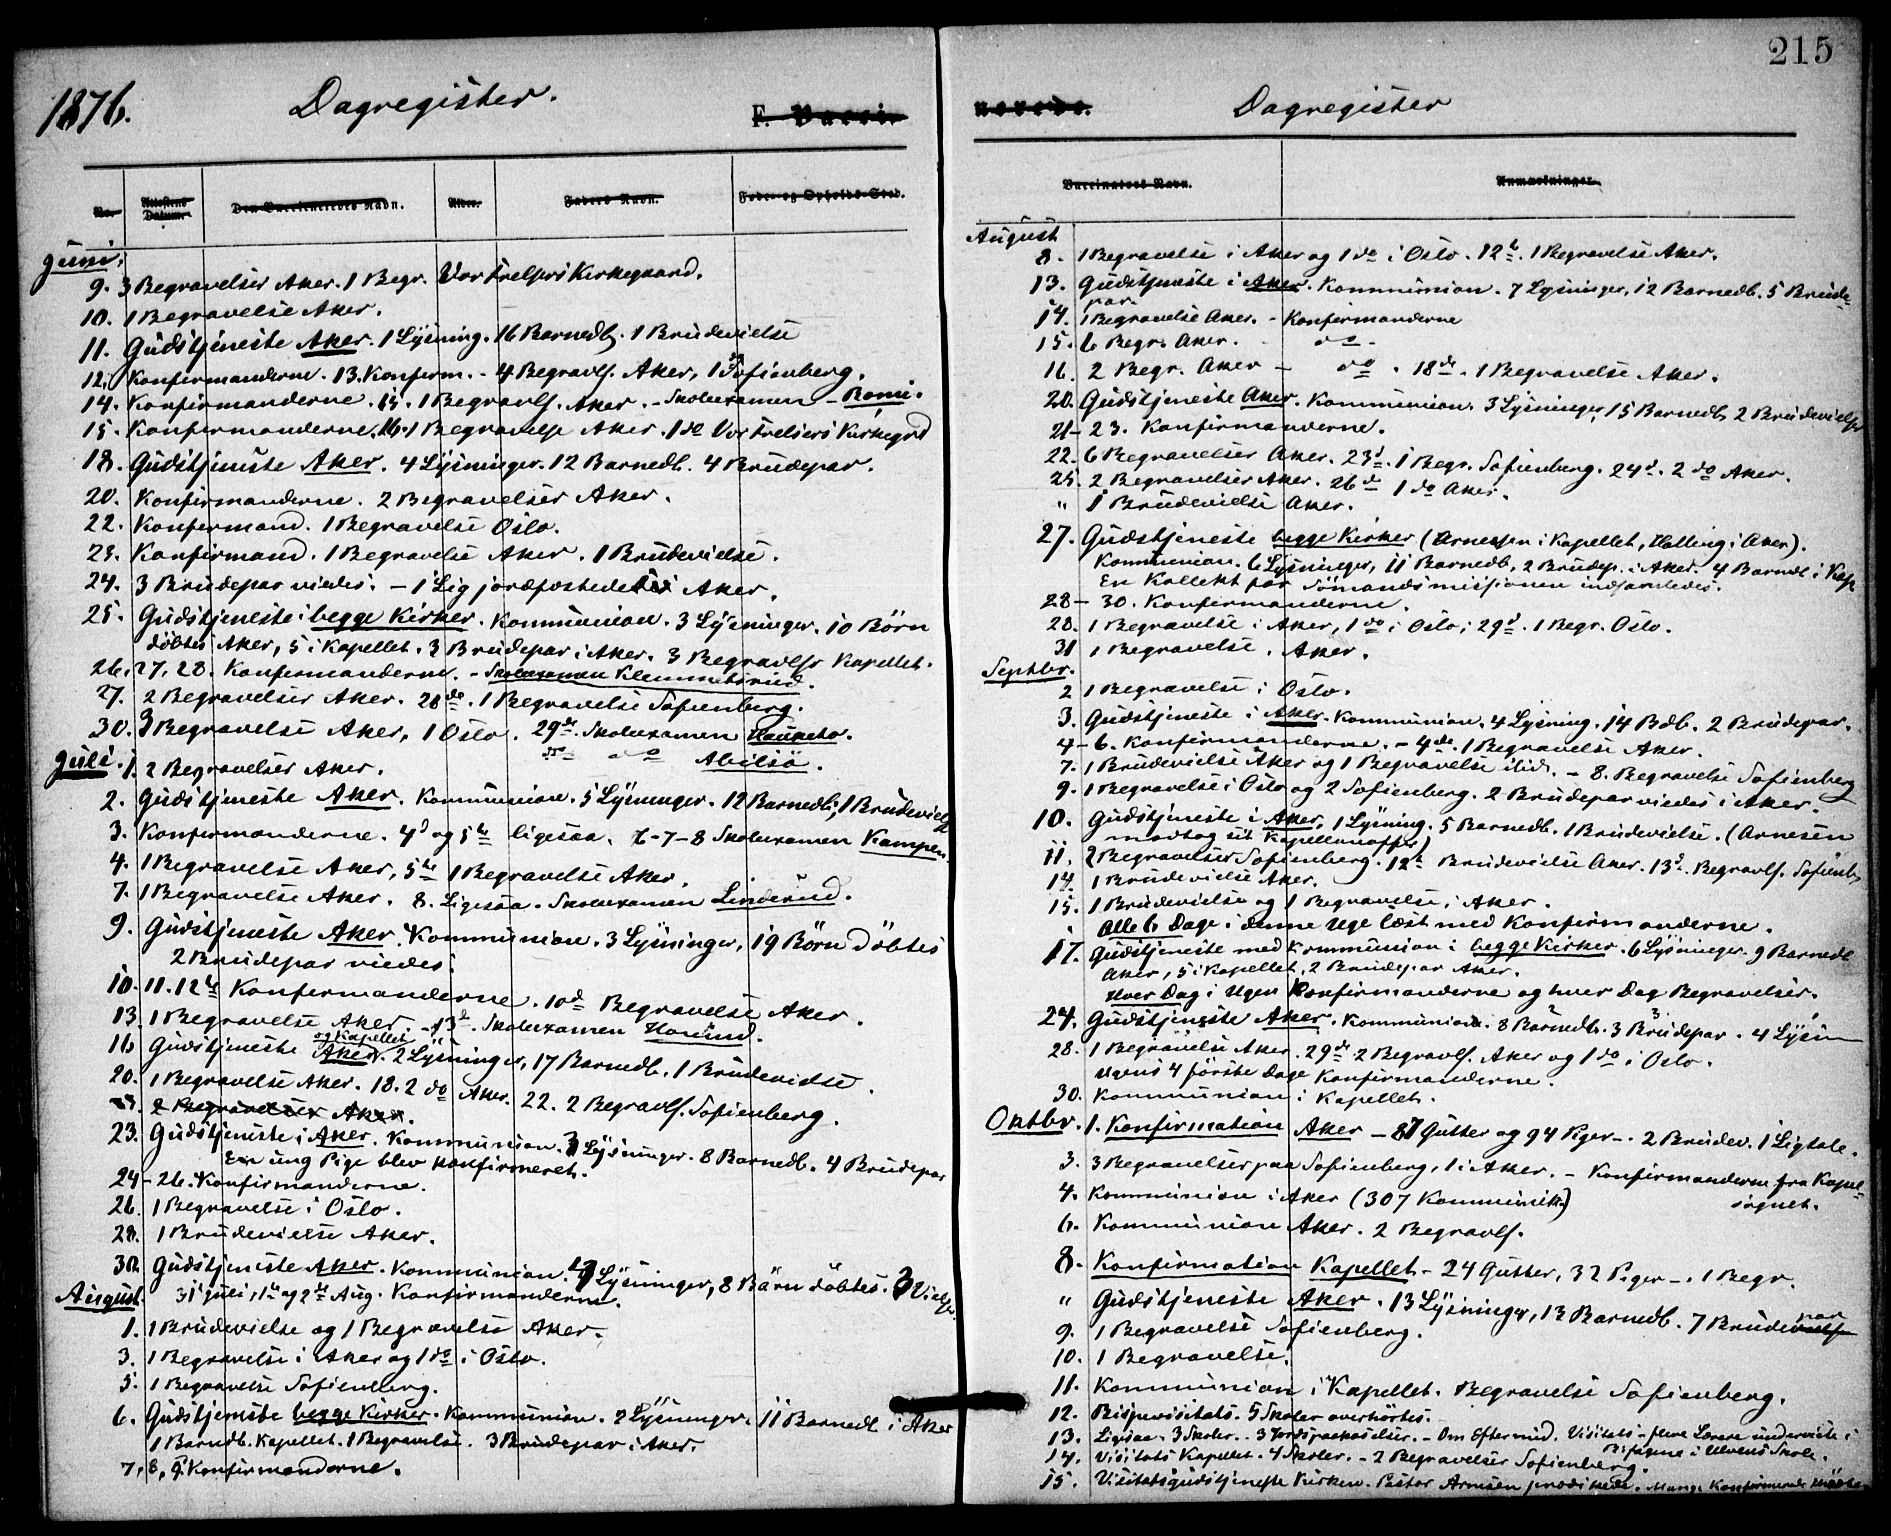 1876.
Dagregister.
F. Vacci-
No.
Attestens Datum.
Den Vaccineredes Navn.
Alder.
Faders Navn.
Føde- og Opholds-Sted.
Juni.
9. 3 Begravelser Aker. 1 Begr. Vor Frelsers Kirkegaard.
10. 1 Begravelse Aker.
11. Gudstjeneste Aker. 1 Lysning. 16 Barnedb. 1 Brudevielse
12. Konfirmanderne. 13. Konfirm. - 4 Begravls. Aker, 1 Sofienberg.
14. Konfirmanderne. 1 Begravls. Aker. - Skolexamen - Bomi.
15. Konfirmanderne. 16. 1 Begravelse Aker. 1 do Vor Frelsers Kirkegrd
18. Gudstjeneste Aker. 4 Lysninger. 12 Barnedb. 4 Brudepar.
20. Konfirmanderne. 2 Begravelser Aker.
22. Konfirmand. 1 Begravelse Oslo.
23. Konfirmand. 1 Begravelse Aker. 1 Brudevielse.
24. 3 Brudepar viedes. - 1 Lig jordfæstedes i Aker.
25. Gudstjeneste i begge Kirker. Kommunion. 3 Lysninger. 10 Børn
døbtes i Aker, 5 i Kapellet. 3 Brudepar i Aker. 3 Begravlsr Kapellet.
26, 27, 28. Konfirmanderne. - Skolexamen Klemmetsrud.
27. 2 Begravelser Aker. 28de. 1 Begravelse Sofienberg.
30. 3 Begravelse Aker, 1 Oslo. 29de. Skolexamen Hauketo.
do Abilsø.
Juli. 1. 2 Begravelser Aker.
2. Gudstjeneste Aker. Kommunion. 5 Lysninger. 12 Barnedb., 1 Brudevielse
3. Konfirmanderne. 4d og 5te ligesaa. 6-7-8 Skolexamen Kampen.
4. 1 Begravelse Aker, 5te 1 Begravelse Aker.
7. 1 Begravelse Aker. 8. Ligesaa. Skolexamen Linderud.
9. Gudstjeneste Aker. Kommunion. 3 Lysninger, 19 Børn døbtes
2 Brudepar viedes.
10. 11. 12te Konfirmanderne. 10d Begravelse Aker.
13. 1 Begravelse Aker. - 13d. Skolexamen
16. Gudstjeneste Aker og Kapellet. 2 Lysninger, 17 Barnedb. 1 Brudevielse
20. 1 Begravelse Aker. 18. 2 do Aker. 22. 2 Begravls. Sofienberg.
2 Begravelser Aker.
23. Gudstjeneste i Aker. Kommunion. Lysninger. 8 Barnedb. 4 Brudepar
En ung Pige blev konfirmeret.
24 - 26. Konfirmanderne.
26. 1 Begravelse i Oslo.
28. 1 Brudevielse Aker.
30. Gudstjeneste Aker. Kommunion. Lysninger, 8 Børn døbtes. 3 Vielsr.
August. 31 Juli, 1te og 2de Aug. Konfirmanderne.
1. 1 Brudevielse og 1 Begravelse Aker.
3. 1 Begravelse i Aker og 1 do i Oslo.
5. 1 Begravelse Sofienberg.
6. Gudstjeneste begge Kirker. Kommunion. 2 Lysninger. 11 Barnedb. i Aker
1 Barnedb. Kapellet. 1 Begravelse. 3 Brudepar i Aker.
7, 8, 9. Konfirmanderne.
215
nerede.
Dagregister
Vaccinators Navn.
Anmærkninger.
August
8. 1 Begravelse i Aker og 1 do i Oslo. 12te. 1 Begravelse Aker.
13. Gudstjeneste i Aker. Kommunion. 7 Lysninger, 12 Barnedb. 5 Brude-
par.
14. 1 Begravelse Aker. - Konfirmanderne
15. 6 Begr. Aker. - do -
16. 2 Begr. Aker - do. 18de. 1 Begravelse Aker.
20. Gudstjeneste Aker. Kommunion. 3 Lysninger, 15 Barnedb. 2 Brudevielser
21 - 23. Konfirmanderne.
22. 6 Begravelser Aker. 23d. 1 Begr. Sofienberg. 24d. 2 do Aker.
25. 2 Begravelser Aker. 26de 1 do Aker.
" 1 Brudevielse Aker.
27. Gudstjeneste begge Kirker (Arnesen i Kapellet, Halling i Aker).
Kommunion. 6 Lysninger, 11 Barnedb, 2 Brudep. i Aker. 4 Barndb i Kap.
En Kollekt for Sømandsmissionen indsamledes.
28 - 30. Konfirmanderne.
28. 1 Begravelse i Aker, 1 do i Oslo; 29d. 1 Begr. Oslo.
31 1 Begravelse. Aker.
Septbr.
2 1 Begravelse i Oslo.
3. Gudstjeneste i Aker. Kommunion. 4 Lysning. 14 Bdb. 2 Brudepar.
4 - 6. Konfirmanderne. - 4de. 1 Begravelse Aker.
7. 1 Brudevielse Aker og 1 Begravelse ibid. - 8. Begravelse Sofienberg
9. 1 Begravelse i Oslo og 2 Sofienberg. 2 Brudepar viedes i Aker.
10. Gudstjeneste i Aker. 1 Lysning. 5 Barnedb. 1 Brudevielse. (Arnesen
modtog sit Kapellanoffer)
11. 2 Begravelser Sofienberg. 12te Brudevielse Aker. 13d. Begravls. Sofienb.
14. 1 Brudevielse Aker.
15. 1 Brudevielse og 1 Begravelse, Aker.
Alle 6 Dage i denne Uge læst med Konfirmanderne.
17. Gudstjeneste med Kommunion i begge Kirker. 6 Lysninger. 9 Barnedb
Aker, 5 i Kapellet, 2 Brudepar Aker.
Hver Dag i Ugen Konfirmanderne og hver Dag Begravelser.
24. Gudstjeneste Aker. Kommunion. 8 Barnedb. 3 Brudepar. 4 Lysn
28. 1 Begravelse Aker. 29de 2 Begravls. Aker og 1 do i Oslo.
Ugens 4 første Dage Konfirmanderne.
30. Kommunion i Kapellet.
Oktbr. 1. Konfirmation Aker - 87 Gutter og 94 Piger -. 2 Brudev. 1 Ligtale.
3. 3 Begravelser paa Sofienberg, 1 i Aker. - Konfirmanderne fra Kapel-
sognet.
4. Kommunion i Aker (307 Kommunik.)
6. Kommunion Aker. 2 Begravls.
8. Konfirmation Kapellet - 24 Gutter, 32 Piger -. 1 Begr.
" Gudstjeneste Aker. 13 Lysninger, 13 Barnedb. 7 Brudepar
9. 1 Begravelse Sofienberg.
10. 1 Begravelse.
11. Kommunion i Kapellet. Begravelse Sofienberg.
12. Bispevisitats. 5 Skoler overhørtes.
13. Ligsaa. 3 Skoler. 3 Jordpaakastelser. - Om Eftermid. Visitats - flere Lærere underviste i
Bispens i Ulvens Skole.
14. Visitats Kapellet. 4 Skoler. - 2 Begravelser Sofienberg.
15. Visitatsgudstjeneste Kirken. Pastor Arnesen prædikede. Mange Konfirmerede